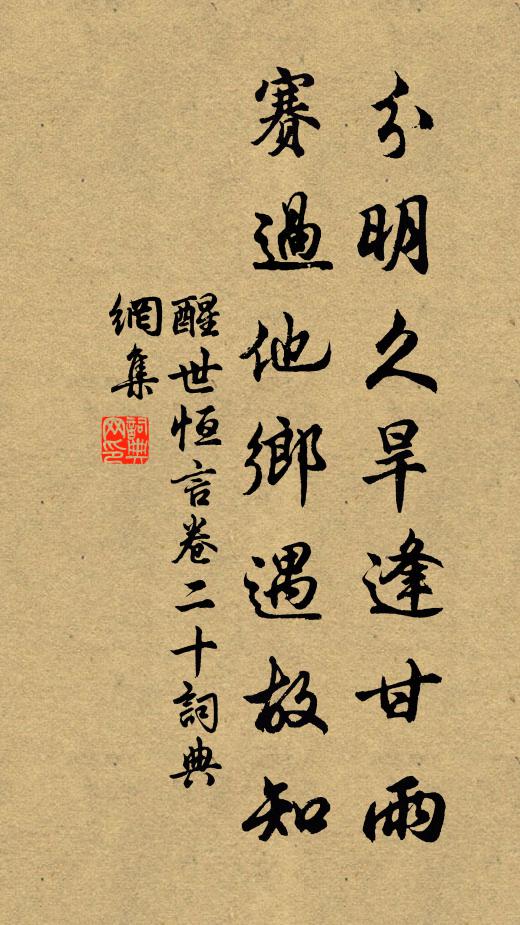 分明久旱逢甘雨
賽過他鄉遇故知
醒世恒言卷二十詞典
網集
詞典
网印